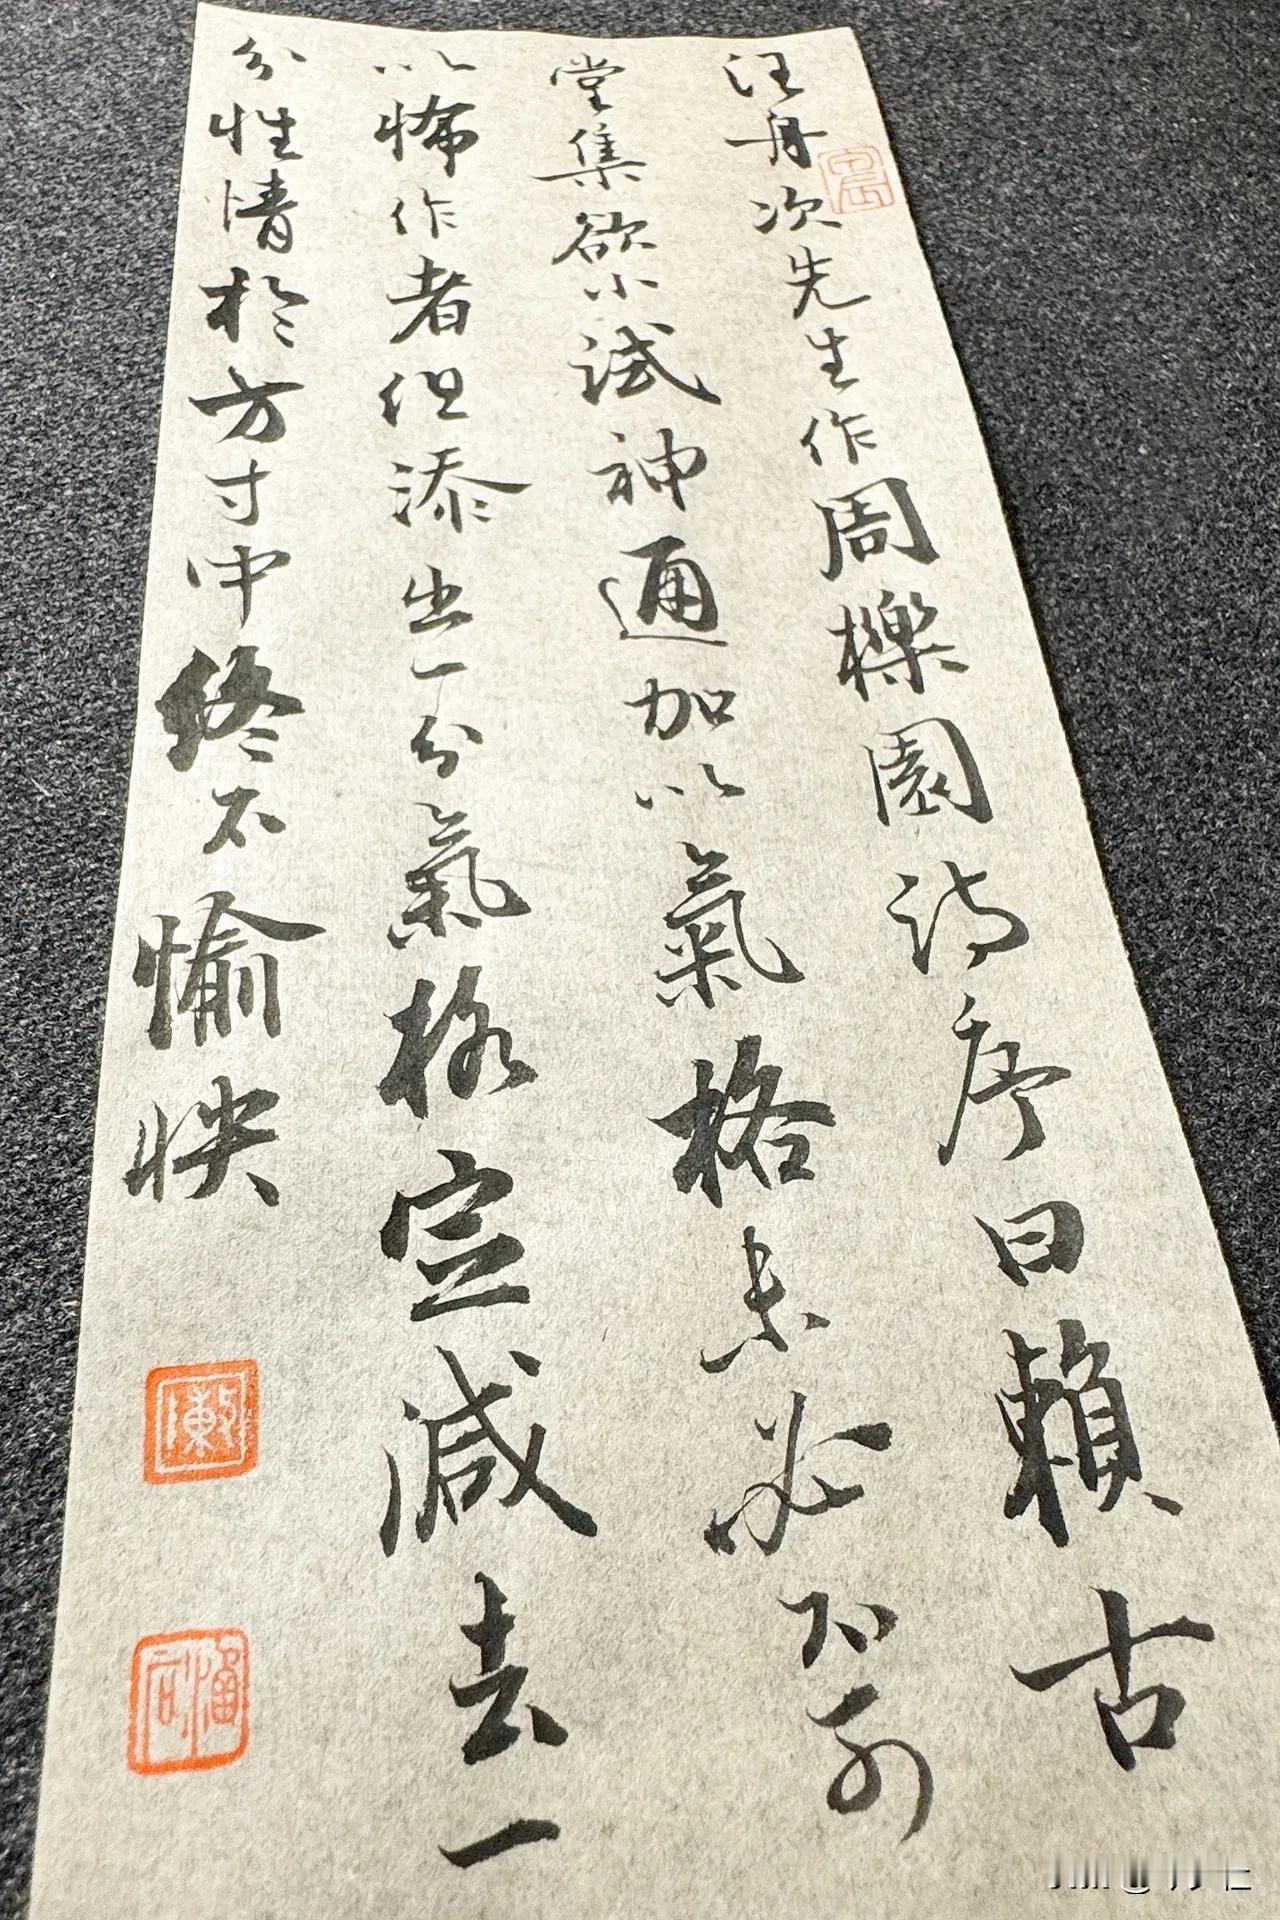 汪舟次先生作周櫟園詩序曰賴古
堂集欲小試神通加以氣格未必不可
以怖作者但添出一分氣格定減去一
分性情於方寸中終不愉快